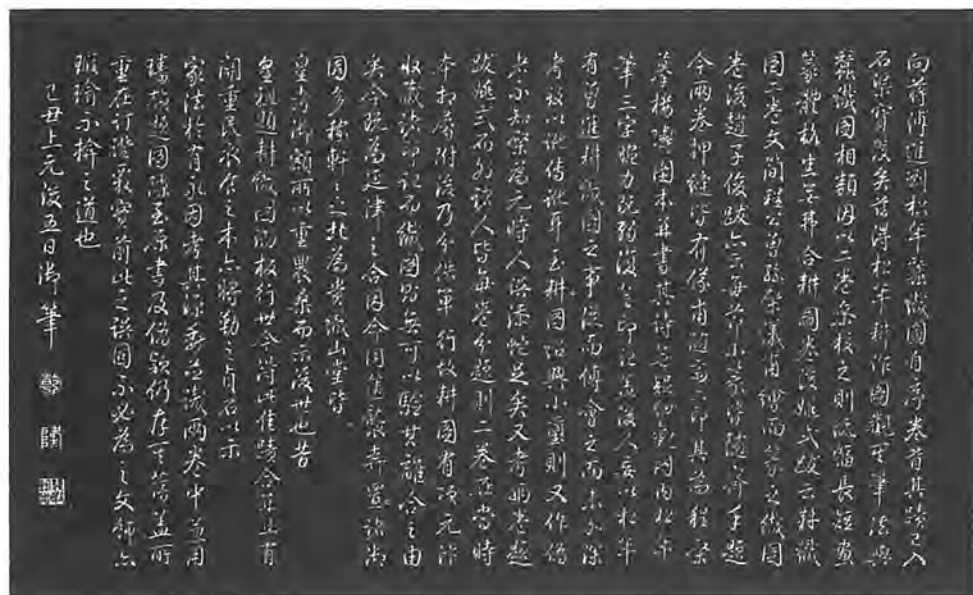 向蔣溥進劉松年蠶織圖自序卷首其蹟已入
石渠寶笈矣茲得松年耕作圖觀其筆法與
蠶織圖相類因以二卷參校之則紙幅長短畫
篆體格悉無弗合耕圖卷後姚式跋云耕織
圖二卷文簡程公曾孫棨儀甫繪而篆之織圖
卷後趙子俊跋亦云每節小篆皆隨齋手題
今兩卷押縫皆有儀甫隨齋二印其為程棨
摹樓璹圖本並書其詩無疑細觀圖內松年
筆三字腕力既弱復無印記蓋後人妄以松年
有曾進耕織圖之事從而傅會之而未加深
考致以訛傳訛耳至耕圖紹興小璽則又作偽
者不知棨為元時人添蛇足矣又考兩卷題
跋姚式而外諸人皆每卷分題則二卷在當時
本相屬附後乃分佚單行故耕圖有項元汴
收藏諸印記而織圖則無可以驗其離合之由
矣今既為延津之合因命同篋襲弆置諸御
園多稼軒軒之北為貴織山堂皆
皇考御額所以重農桑而示後世也昔
皇祖題耕織圖鏤板行世今得此佳蹟合並且有
關重民衣食之本亦將勒之貞石以示
家法於有永因考其源委並識兩卷中兼用
璹韻題圖隙至原書及偽款仍存其舊蓋所
重在訂證覈實前此之誤固不必為之文飾亦
瑕瑜不掩之道也
己丑上元後五日御筆